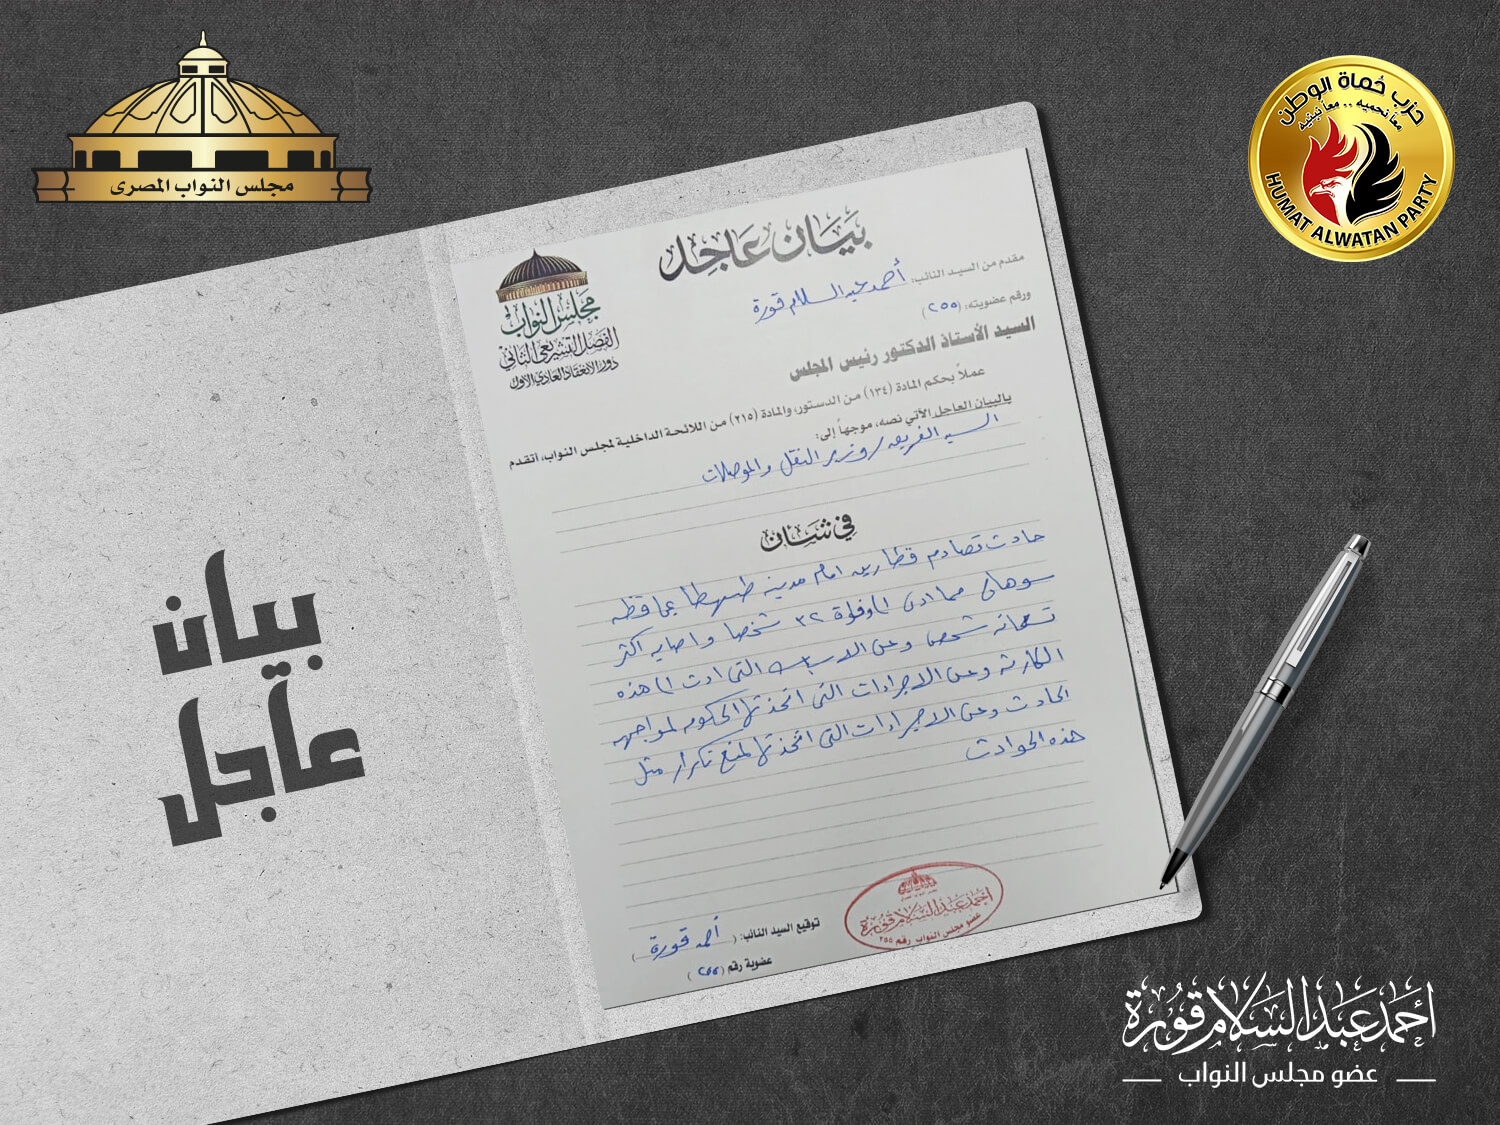 مجلس النواب المصرى
حزب حُماة الوطن
معاً نحميه .. معاً نبنيه
HUMAT ALWATAN PARTY
بيان
عاجل
بيان عاجل
مجلس النواب
الفصل التشريعي الثاني
دور الانعقاد العادي الأول
مقدم من السيد النائب: أحمد عبد السلام قورة
ورقم عضويته: (٢٥٥)
السيد الأستاذ الدكتور رئيس المجلس
عملاً بحكم المادة (١٣٤) من الدستور، والمادة (٢١٥) من اللائحة الداخلية لمجلس النواب، أتقدم
بالبيان العاجل الآتي نصه، موجهاً إلى:
السيد الفريق وزير النقل والموصلات
في شأن
حادث تصادم قطارين امام مدينة طهطا بمحافظة
سوهاج مما ادى الى وفاة ٣٢ شخصا واصابه اكثر
شخص وعن الاسباب التى ادت الى هذه
الكارثه وعن الاجراءات التى اتخذتها الحكومه لمواجهه
الحادث وعن الاجراءات التى اتخذتها لمنع تكرار مثل
هذه الحوادث
أحمد عبد السلام قورة
عضو مجلس النواب رقم ٢٥٥
توقيع السيد النائب: (أحمد قورة)
عضوية رقم (٢٥٥)
أحمد عبد السلام قورة
عضو مجلس النواب